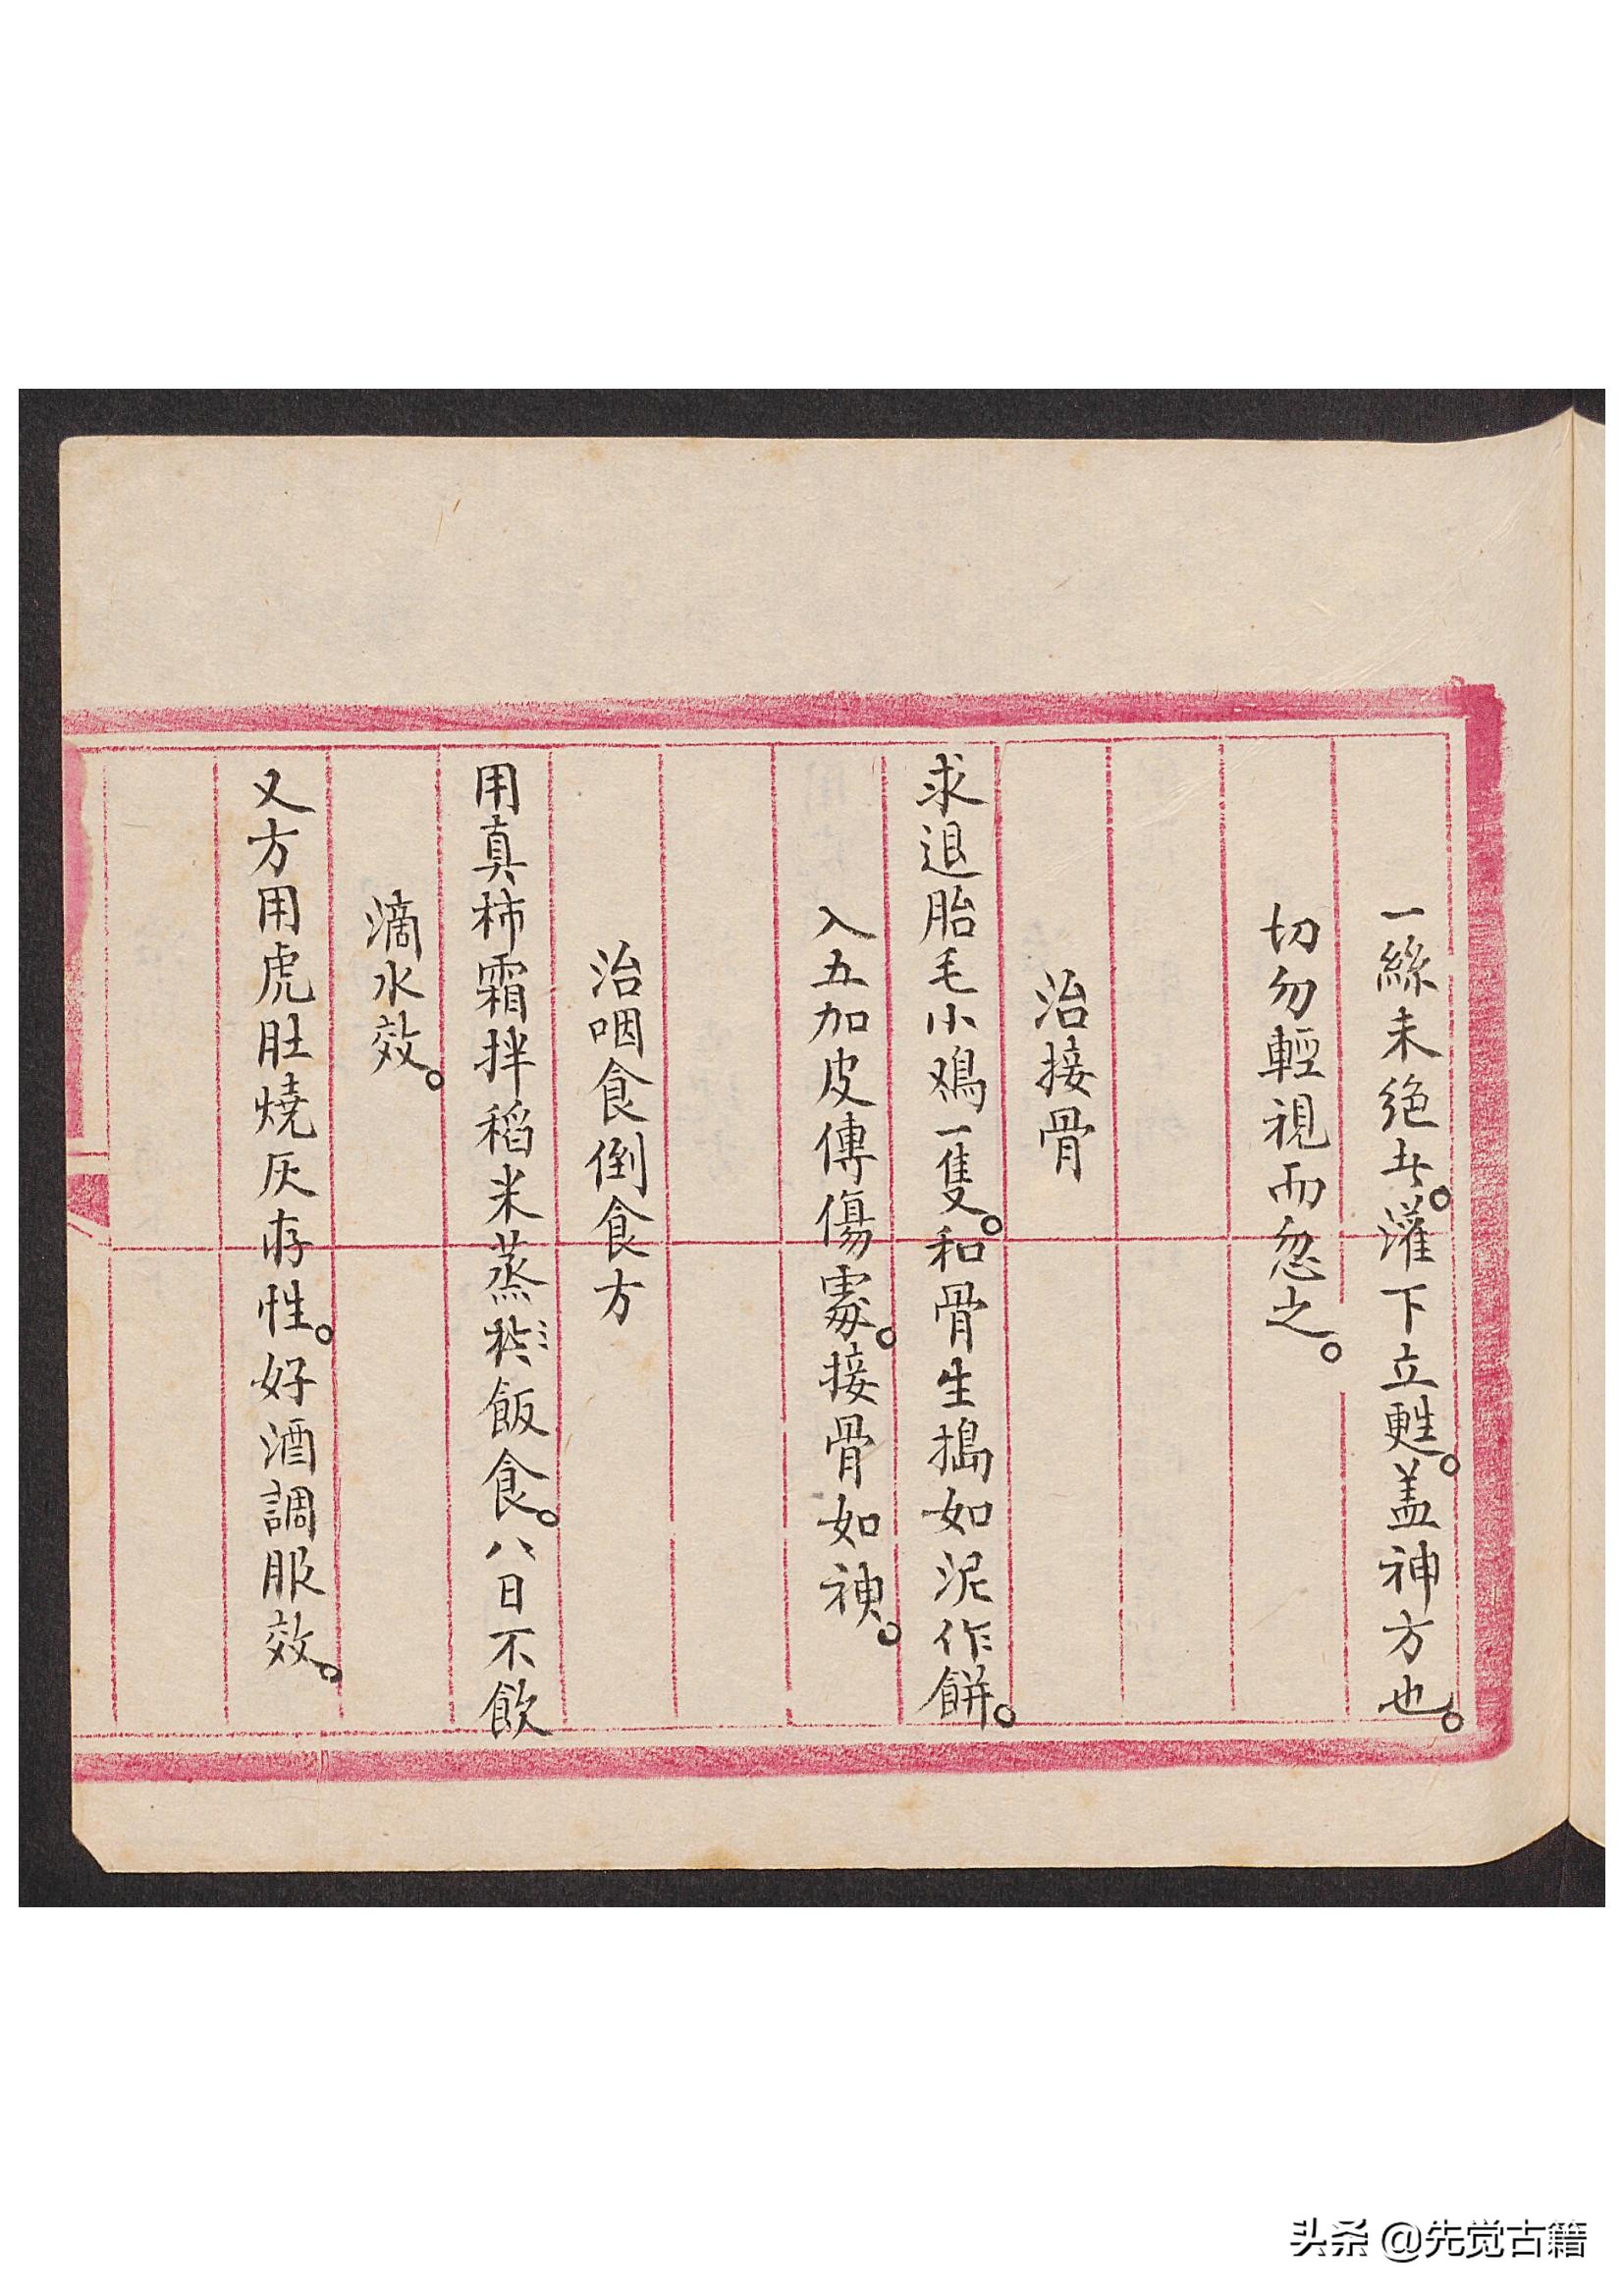 一絲未絕。灌下立甦。盖神方也。
切勿輕視而忽之。
治接骨
求退胎毛小鷄一隻。和骨生搗如泥作餅。
入五加皮傳傷處。接骨如神。
治咽食倒食方
用真柿霜拌稻米蒸扵飯食。八日不飲
滴水效。
又方用虎肚燒灰存性。好酒調服效。
头条 @先觉古籍